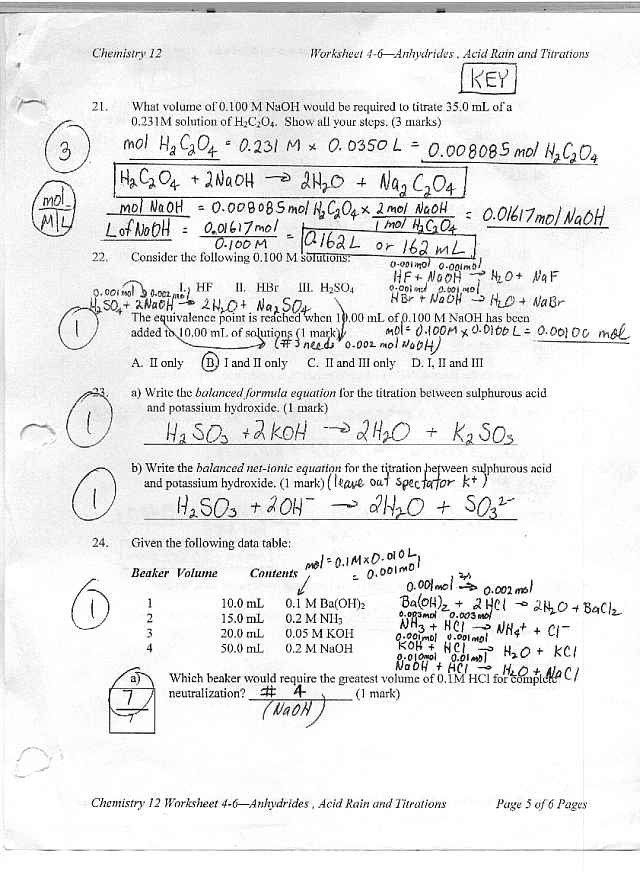 Chemistry 12 Worksheet 4-6—Anhydrides , Acid Rain and Titrations
KEY
21. What volume of 0.100 M NaOH would be required to titrate 35.0 mL of a
0.231M solution of H₂C₂O₄. Show all your steps. (3 marks)
3
mol H₂C₂O₄ = 0.231 M × 0.0350 L = 0.008085 mol H₂C₂O₄
H₂C₂O₄ + 2NaOH → 2H₂O + Na₂C₂O₄
mol
M | L
mol NaOH = 0.008085 mol H₂C₂O₄ × 2 mol NaOH / 1 mol H₂C₂O₄ = 0.01617 mol NaOH
L of NaOH = 0.01617 mol / 0.100 M = 0.162 L or 162 mL
22. Consider the following 0.100 M solutions:
0.001 mol 0.001 mol
HF + NaOH → H₂O + NaF
I. HF II. HBr III. H₂SO₄
0.001 mol → 0.002 mol
0.001 mol 0.001 mol
HBr + NaOH → H₂O + NaBr
H₂SO₄ + 2NaOH → 2H₂O + Na₂SO₄
1
The equivalence point is reached when 10.00 mL of 0.100 M NaOH has been
added to 10.00 mL of solutions (1 mark)
mol = 0.100M × 0.0100 L = 0.00100 mol
(#3 needs 0.002 mol NaOH)
A. II only B. I and II only C. II and III only D. I, II and III
23. a) Write the balanced formula equation for the titration between sulphurous acid
and potassium hydroxide. (1 mark)
1
H₂SO₃ + 2KOH → 2H₂O + K₂SO₃
b) Write the balanced net-ionic equation for the titration between sulphurous acid
and potassium hydroxide. (1 mark) (leave out spectator K⁺)
1
H₂SO₃ + 2OH⁻ → 2H₂O + SO₃²⁻
24. Given the following data table:
mol = 0.1M×0.010L
= 0.001mol
Beaker Volume Contents
1
0.001mol ×2→ 0.002 mol
1 10.0 mL 0.1 M Ba(OH)₂
Ba(OH)₂ + 2HCl → 2H₂O + BaCl₂
0.003mol 0.003 mol
2 15.0 mL 0.2 M NH₃
NH₃ + HCl → NH₄⁺ + Cl⁻
0.001mol 0.001mol
3 20.0 mL 0.05 M KOH
KOH + HCl → H₂O + KCl
0.010mol 0.01mol
4 50.0 mL 0.2 M NaOH
NaOH + HCl → H₂O + NaCl
a) Which beaker would require the greatest volume of 0.1M HCl for complete
neutralization? # 4 (1 mark)
(NaOH)
7
7
Chemistry 12 Worksheet 4-6—Anhydrides , Acid Rain and Titrations Page 5 of 6 Pages